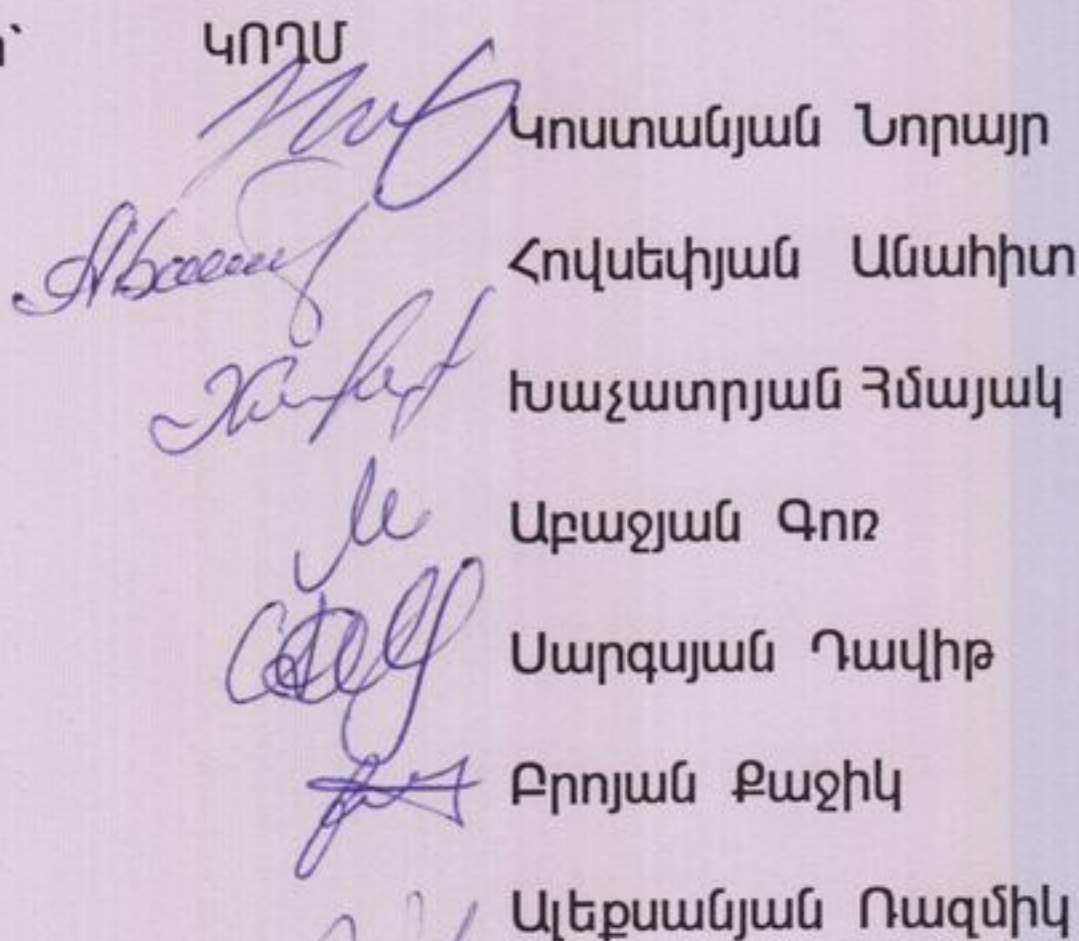 ԿՈՂՄ
Կոստանյան Նորայր
Հովսեփյան Անահիտ
Խաչատրյան Հմայակ
Աբաջյան Գոռ
Սարգսյան Դավիթ
Բրոյան Քաջիկ
Ալեքսանյան Ռազմիկ